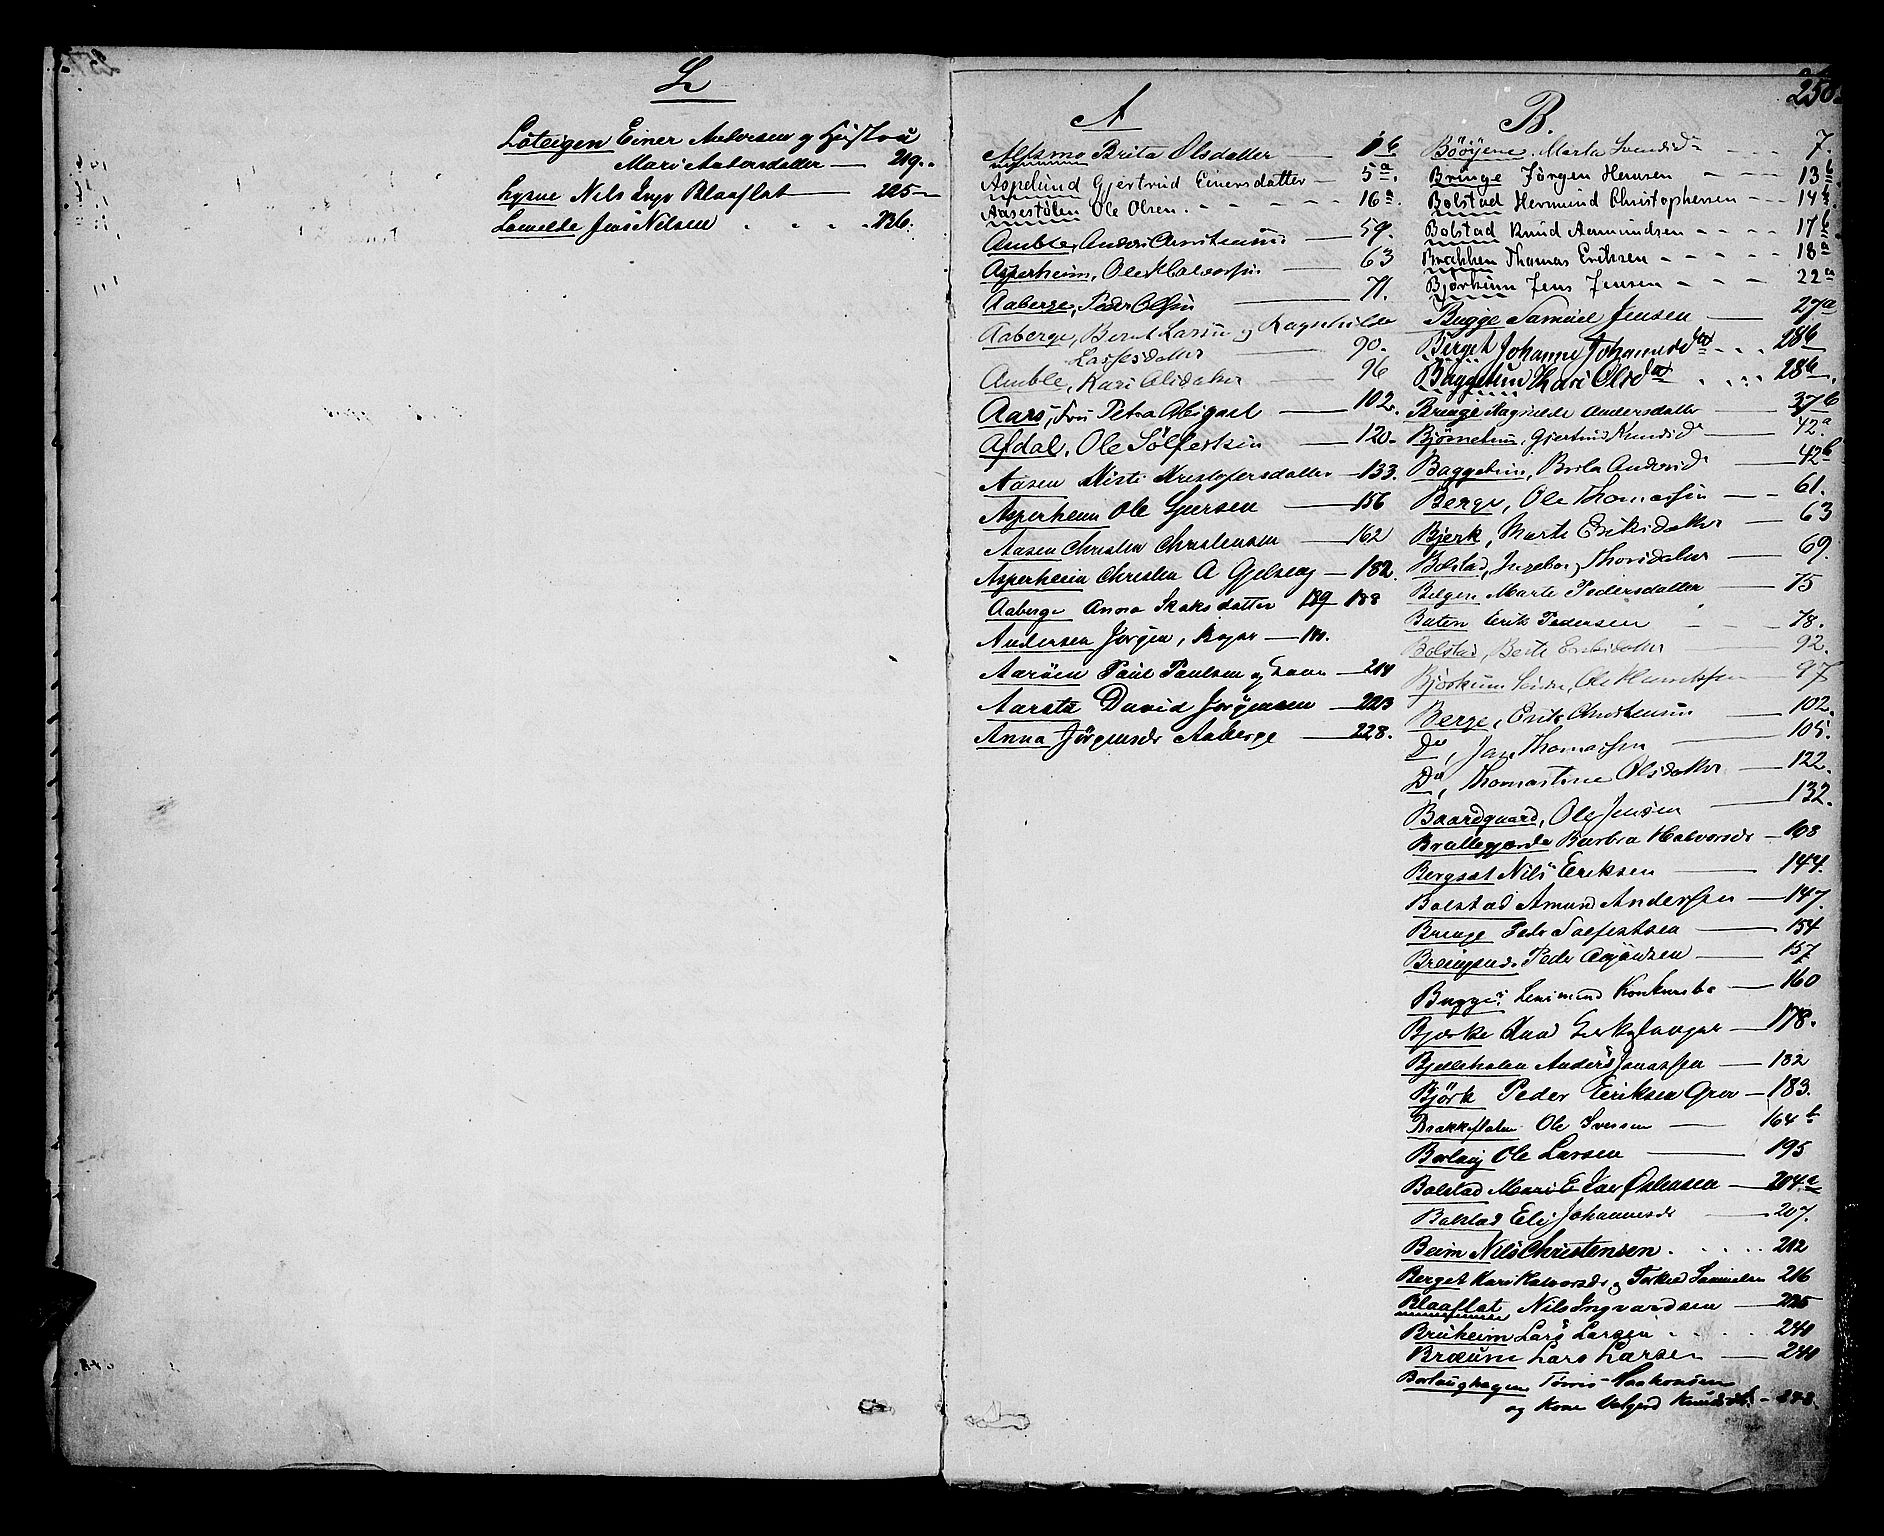 L
Loteigen Einer Andersen og Hustru
Mari Andersdatter — 219.
Lysne Nils Ingv Blaaflat — 225
Lomelde Jens Nilsen . . . . 236.
250
A
Brita Olsdatter — 1b
Aspelund Gjertrud Einersdatter — 5a
Aasestølen Ole Olsen. - - - - - 16a
Amble, Anders Christensen — 59.
Asperheim, Ole Halvorsen — 63
Aaberge, Peder Olsen — 71.
Aaberge, Bernt Larsen og Ragnhilda
Lassesdatter — 90.
Amble, Kari Olsdatter — 96
Aars, Fru Petra Abigael — 102.
Afdal, Ole Sølfestsen — 120.
Aasen Kristi Kristofersdatter — 133.
Asperheim Ole Sjursen — 156
Aasen Christen Christensen — 162
Asperheim Christen A Gjelseng — 182.
Aaberge Anna Skaksdatter 189 188
Andersen Jørgen, Kajar —
Aarøen Paul Paulsen og Kone — 214
Aarstæ David Jørgensen — 223
Anna Jørgensdr Aaberge — 228.
B.
Bøøyene, Marta Svendsdr - 7.
Bringe Jørgen Hemsen - - - - 13b
Bolstad Hermund Christophersen - - - 14
Bolstad Knud Aamundsen - - - - 17b
Brækken Thomas Eriksen - - - - 18a
Bjørkum Jens Jensen - - - 22a
Bugge Samuel Jensen — 27a
Berget Johanne Johannesdr . . . 28b
Baggetun Kari Olsdr . . . . 28b.
Bringe Ragnilde Andersdatter — 37b
Bjørnetun, Gjertrud Knudsdr — 42a
Baggetun, Brita Andersdr — 42b
Berge, Ole Thomassen — 61.
Bjerk, Marte Eriksdatter — 63
Bolstad, Ingeborg Thorsdatter — 69.
Belgen Marte Pedersdatter — 75
Baten Erik Pedersen - - 78.
Bolstad, Berte Eriksdatter 92.
Bjørkum Søndre, Ole Henriksen — 97
Berge, Erik Christensen — 102.
Do, Jan Thomassen — 105.
Do, Thomastine Olsdatter — 122.
Baardgaard, Ole Jensen — 132.
Brattegjerde Barbra Halvorsdr — 108
Bergsat Nils Eriksen — 144.
Bolstad Amund Anderssen — 147.
Bringe Peder Solfestsen — 154
Breingsnæs Peder Asjønsen — 157
Bugges Konkursbo — 160
Bjerke Knud — 178.
Bjelleholen Anders Jonassen — 182
Bjørk Peder Eriksen Grov — 183.
Brækkeflaten Ole Iversen — 164b
Borlaug Ole Larsen — 195
Bolstad Mari E Ivar Østensen — 204a
Bolstad Eli Johannesdr — 207.
Beim Nils Christensen . . . . . 212
Berget Kari Halvorsdr og Torkel Samuelsen 216
Blaaflat Nils Ingvardsen — 225
Bruheim Lars Larsen . . . . 240
Bræum Lars Larsen — 240
Borlaughagen Tørris Haakonsen
og Kone Valgerd Knudsdtr. - 242.